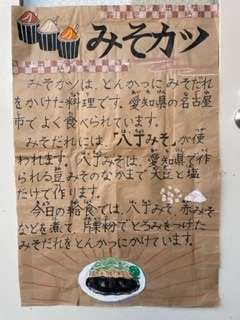 みそカツ
みそカツは、とんかつに、みそだれ
をかけた料理です。愛知県の名古屋
市でよく食べられています。
みそだれには、「八丁みそ」が使
われます。八丁みそは、愛知県で作
られる豆みそのなかまで大豆と塩
だけで作ります。
今日の給食では、八丁みそ、赤みそ
などを煮て、片栗粉でとろみをつけた
みそだれをとんかつにかけています。